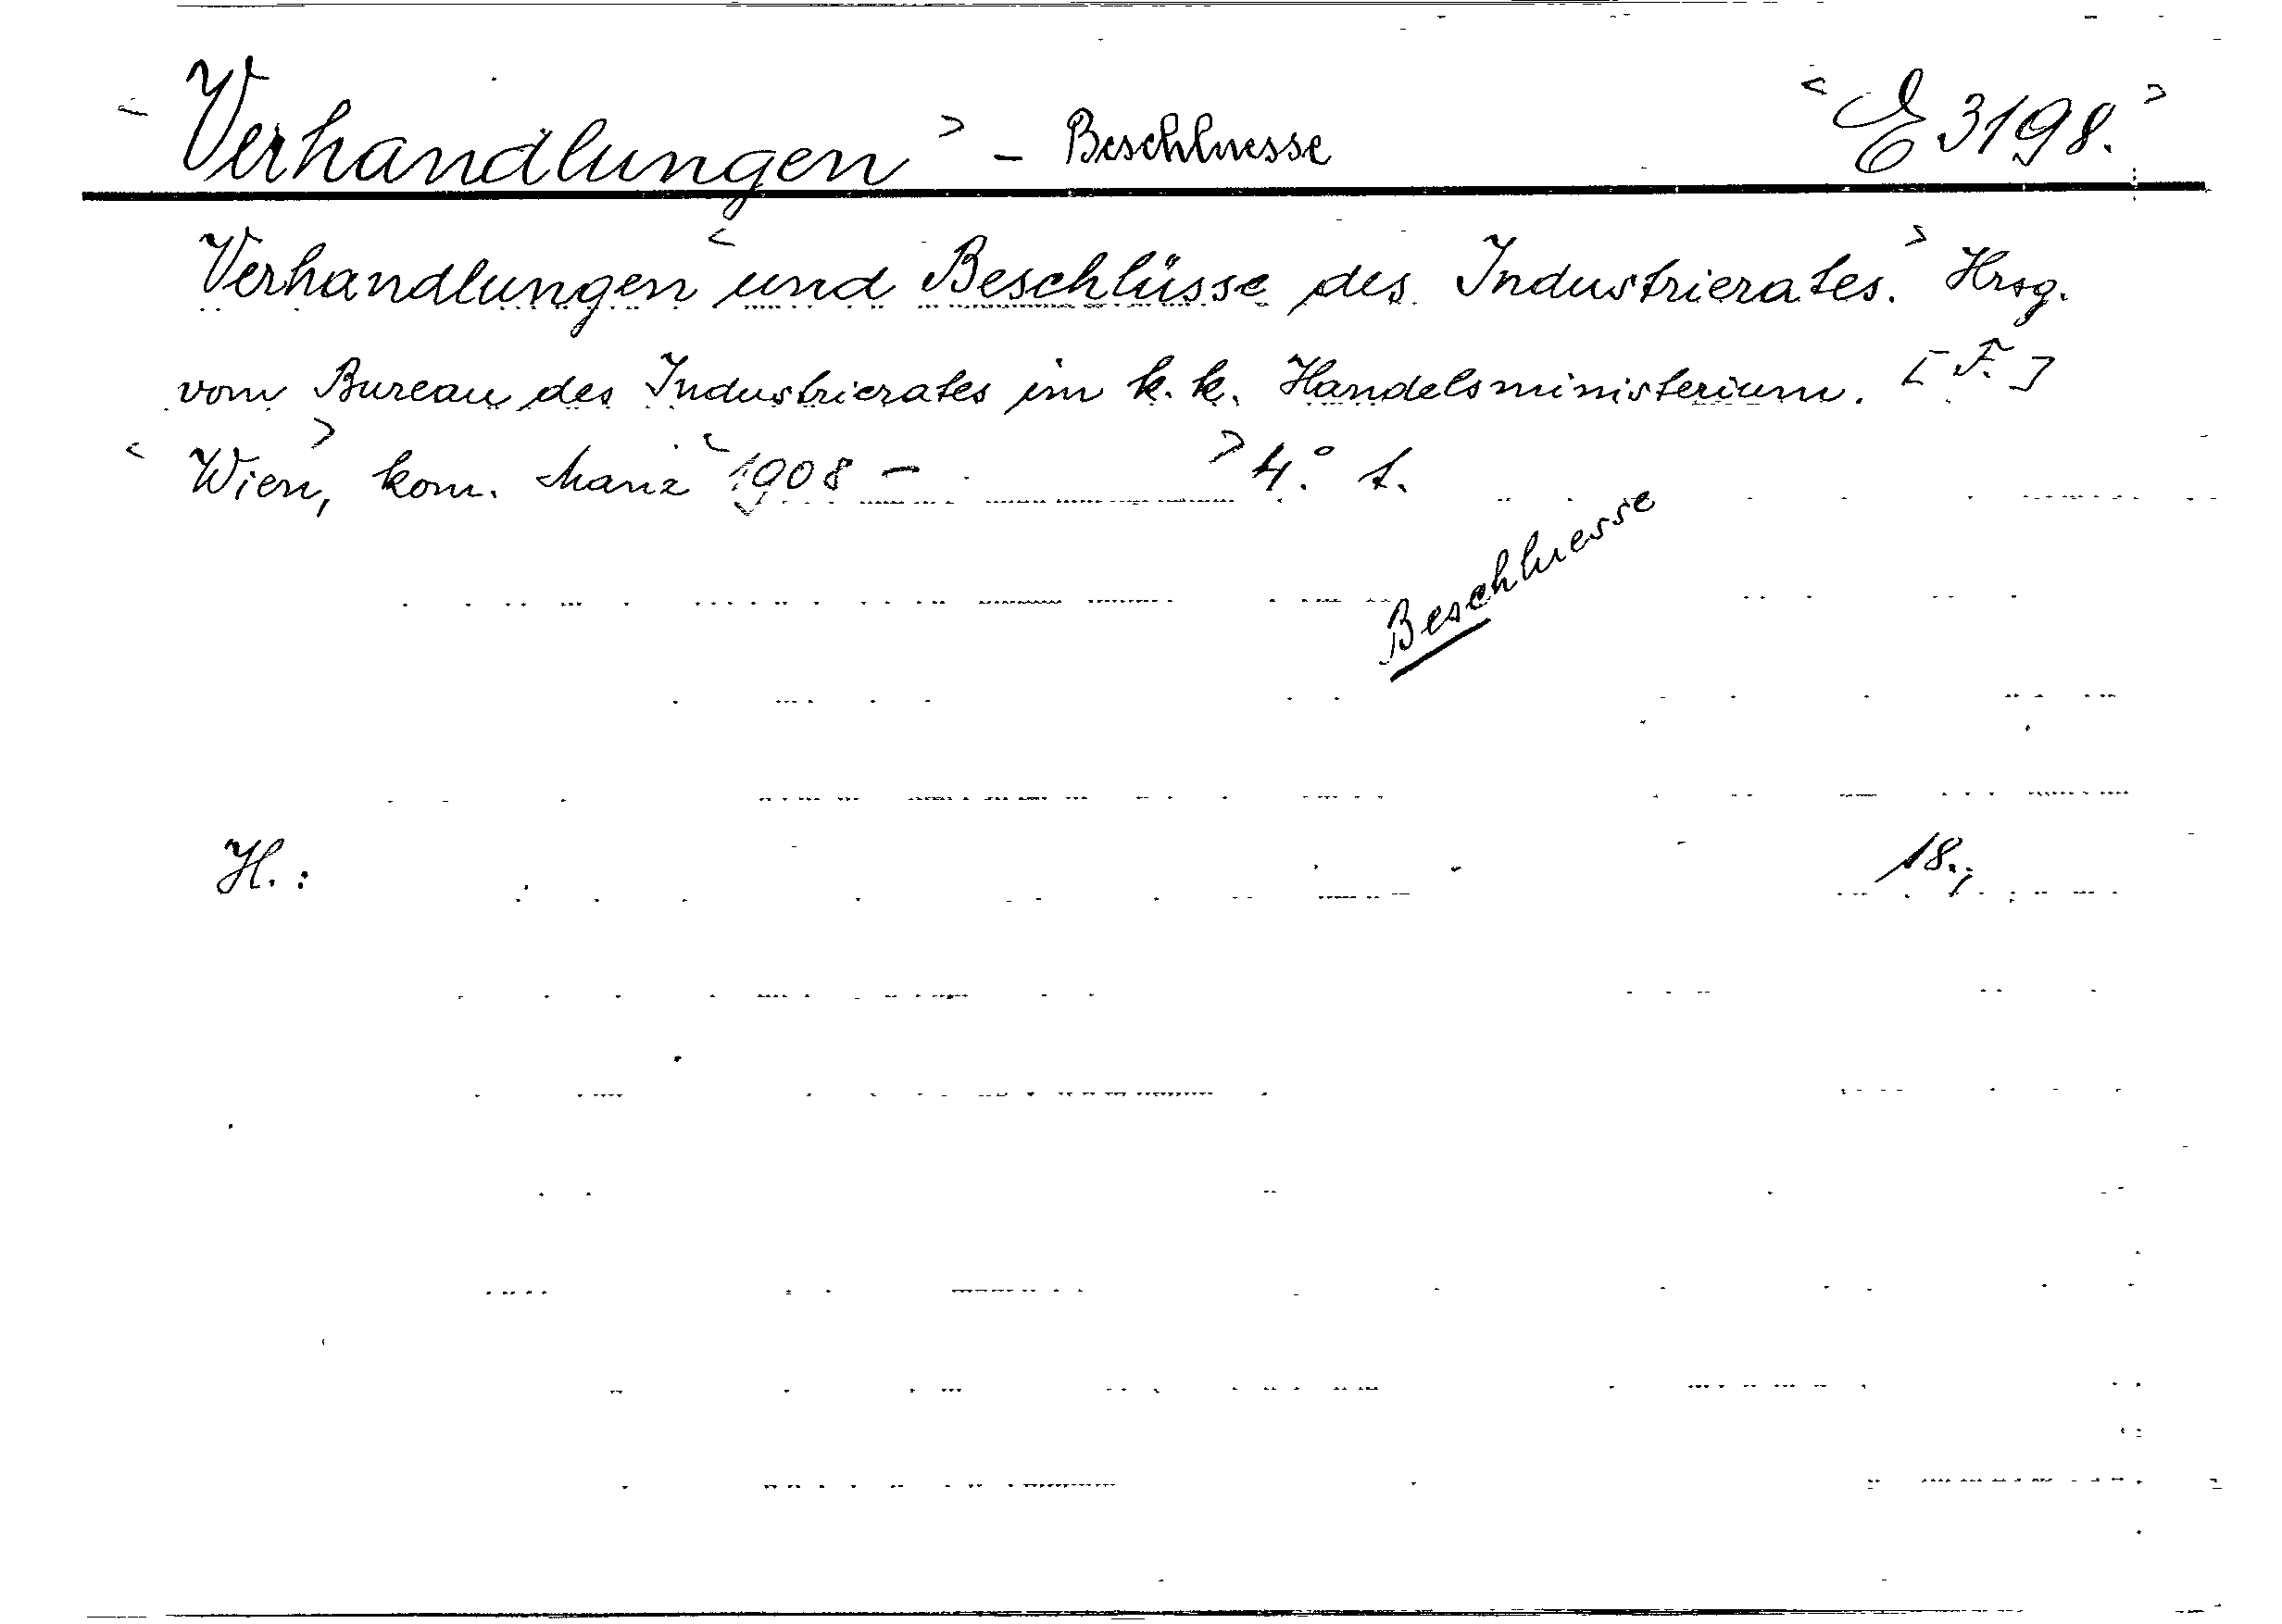 < Verhandlungen > - Beschluesse < E 3198. >
Verhandlungen < und Beschlüsse des Industrierates. > Hrsg.
vom Bureau des Industrierates im k. k. Handelsministerium. [F.]
< Wien, > kom. Manz < 1908 - > 4.° t.
Beschluesse
H.: 18.,